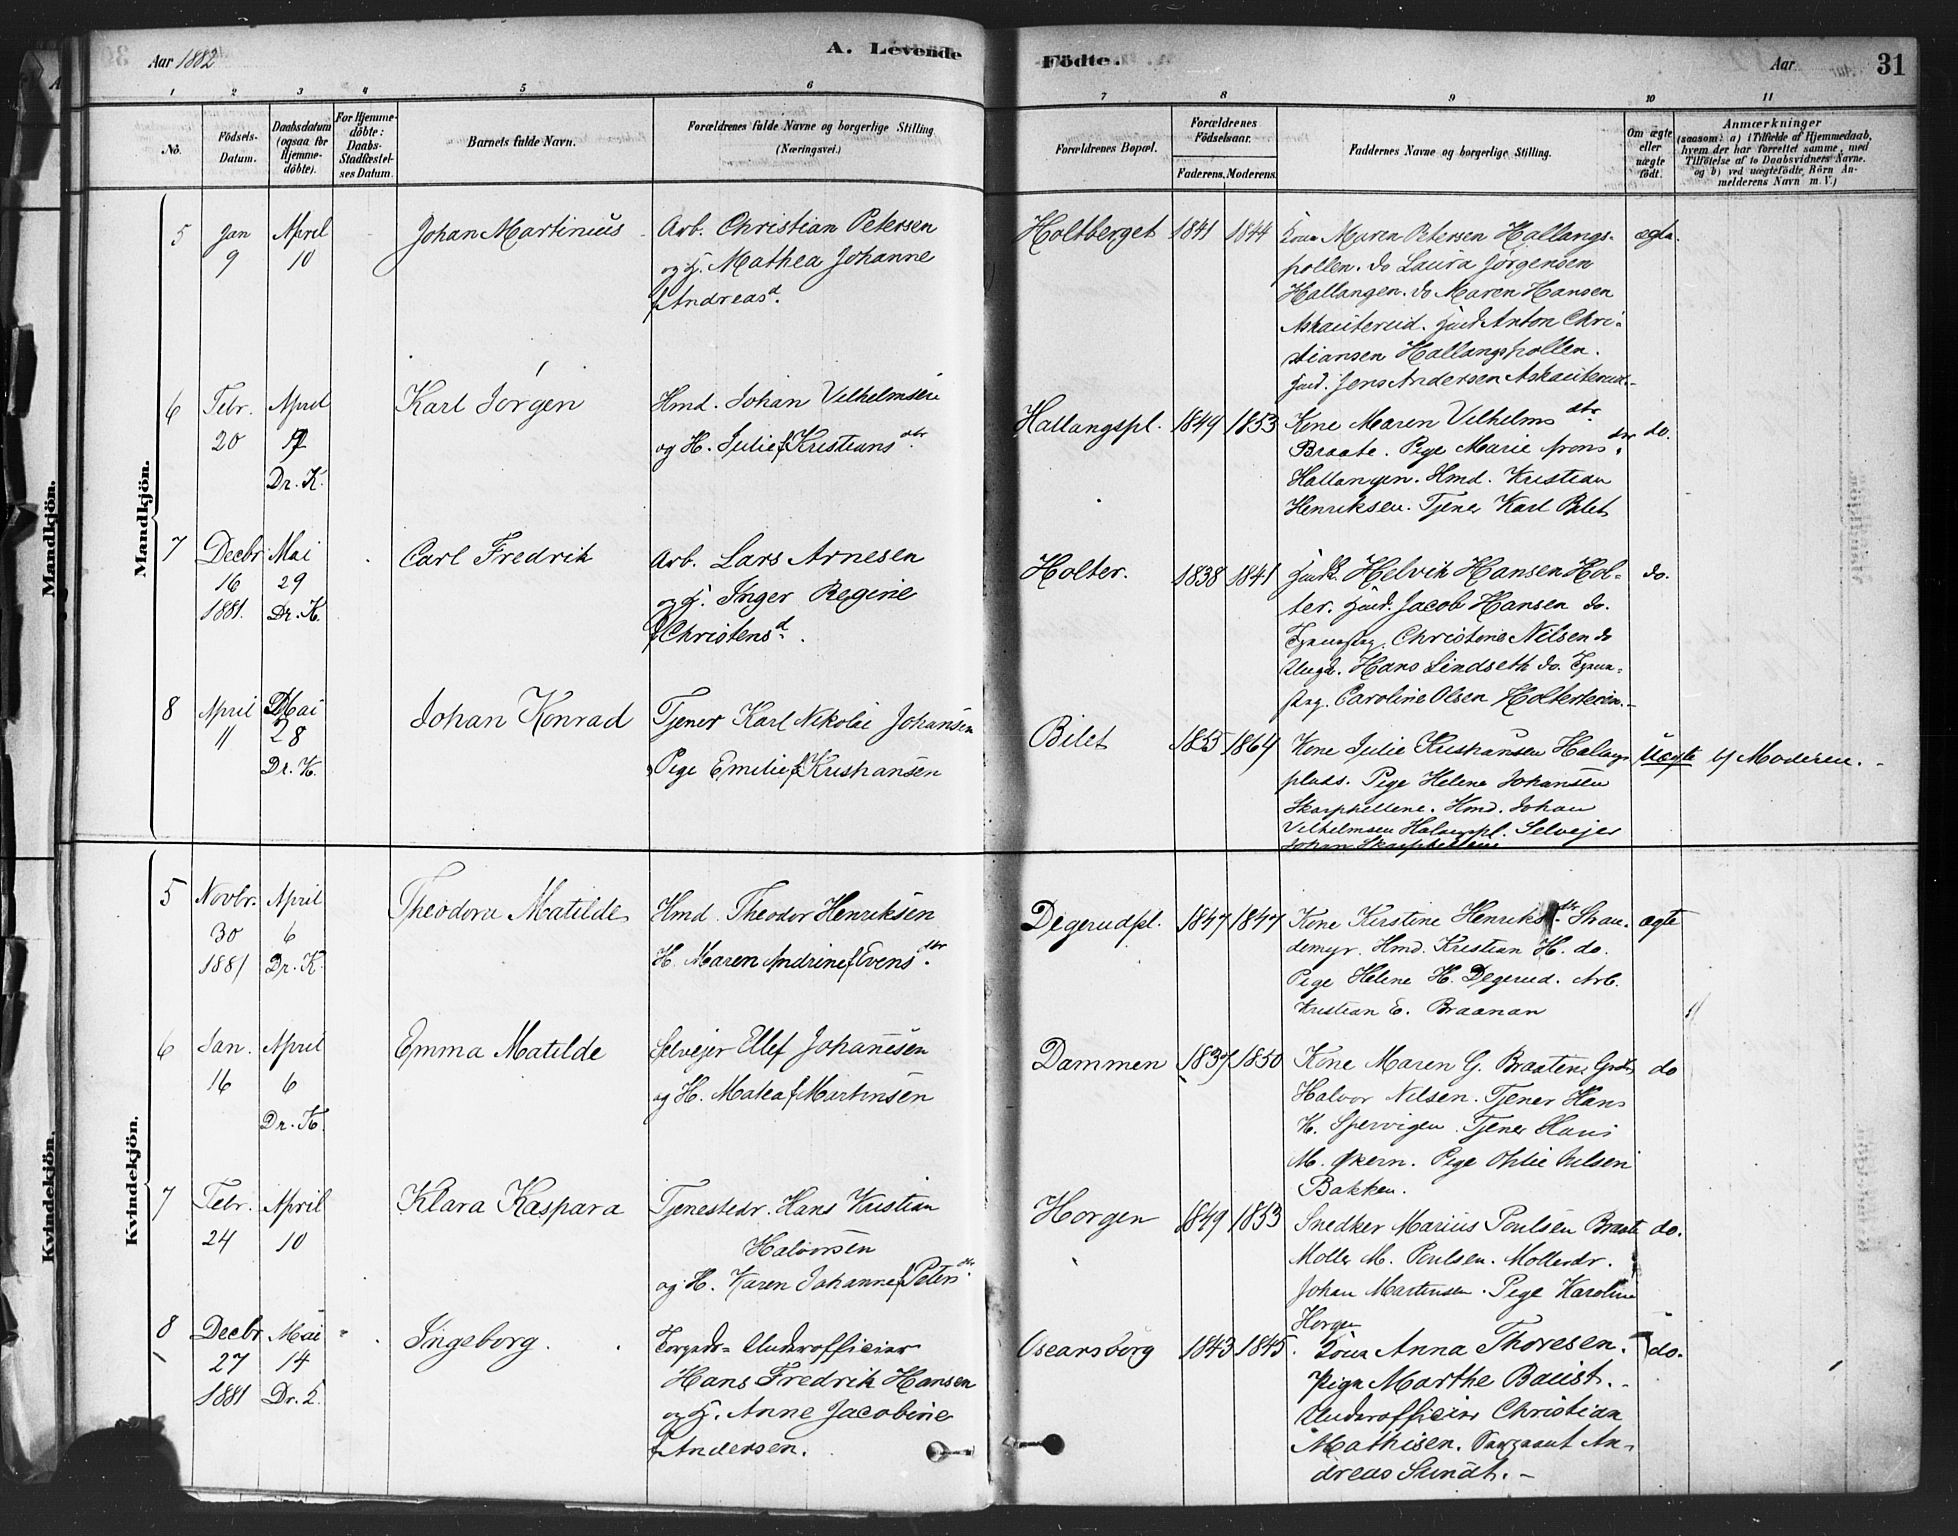 Aar 1882
A. Levende
Födte.
Aar
31
1 2 3 4 5 6 7 8 9 10 11
No.
Födsels-
Datum.
Daabsdatum
(ogsaa for
Hjemme-
döbte).
For Hjemme-
döbte:
Daabs-
Stadfæstel-
ses Datum.
Barnets fulde Navn.
Forældrenes fulde Navne og borgerlige Stilling
(Næringsvei.)
Forældrenes Bopæl.
Forældrenes
Födselsaar.
Faderens. Moderens.
Faddernes Navne og borgerlige Stilling.
Om ægte
eller
uægte
födt.
Anmærkninger
(saasom: a) i Tilfælde af Hjemmedaab,
hvem der har forrettet samme, med
Tilföielse af to Daabsvidners Navne.
og b) ved uægtefödte Börn An-
melderens Navn m. V.)
Mandkjön.
Mandkjön.
5
Jan
9
April
10
Johan Martinius
Arb. Christian Petersen
og H. Mathea Johanne
f Andreasd.
Holtberget
1841
1844
Kone Maren Petersen Hallangs-
pollen. do Laura Jørgensen
Hallangen. do Maren Hansen
Askautereid. Huud Anton Chri-
stiansen Hallangspollen.
Huud. Jens Andersen
ægte.
6
Febr.
20
April
9
Dr. K.
Karl Jörgen
Hmd. Johan Vilhelmsen
og H. Julie f Kristiansdtr.
Hallangspl.
1849
1853
Kone Maren Vilhelmsdtr.
Braate. Pige Marie Aronsdtr.
Hallangen. Hmd. Kristian
Henriksen. Tjener Karl Bilet
do.
7
Decbr
16
1881.
Mai
29
Dr. K.
Carl Fredrik
Arb. Lars Arnesen
og H. Inger Regine
f Christensd.
Holter.
1838
1841
Helvik Hansen Hol-
ter. Jacob Hansen do.
Christine Nilsen do
Ungk. Hans Lindseth do.
Caroline Olsen
do.
8
April
11
Mai
28
Dr. K.
Johan Konrad
Tjener Karl Nikolai Johansen
Pige Emilie f Kristiansen
Bilet
1855
1864
Kone Julie Kristiansen Halangs
plads. Pige Helene Johansen
Skarphellene. Hmd. Johan
Vilhelmsen Halangspl. Selvejer
Johan Skarphellene
Uægte
af Moderen.
Kvindekjön.
Kvindekjön.
5
Novbr.
30
1881
April
6
Dr. K.
Theodora Matilde
Hmd. Theodor Henriksen
H. Maren Andrine f Evensdtr.
Degerudpl.
1847
1847
Kone Kirstine Henriksdtr. Stran-
demyr. Hmd. Kristian H. do.
Pige Helene H. Degerud. Arb.
Kristian E. Braanan
ægte
6
Jan.
16
April
6
Dr. K.
Emma Matilde
Selvejer Ellef Johannesen
og H. Matea f Martinsen
Dammen
1837
1850
Kone Maren G. Braaten. Grdb.
Halvor Nilsen. Tjener Hans
K. Spervigen. Tjener Hans
M. Økern. Pige Othlie Nilsen
Bakken.
do
7
Febr.
24
April
10
Klara Kaspara
Tjenestedr. Hans Kristian
Halvorsen
og H. Karen Johanne f Petersdtr.
Horgen
1849
1853
Snedker Marius Poulsen Braate
Moller M. Poulsen. Mollerdr.
Johan Martinsen. Pige Karoline
Horgen
do.
8
Decbr
27
1881
Mai
14
Dr. K.
Ingeborg.
Torpedo-Underofficier
Hans Fredrik Hansen
og H. Anne Jacobine
f Andersen.
Oscarsborg
1843
1845.
Kone Anna Thoresen.
Pige Marthe Bauist.
Underofficier Christian
Mathisen. Sergeant An-
dreas Sundt.
do.